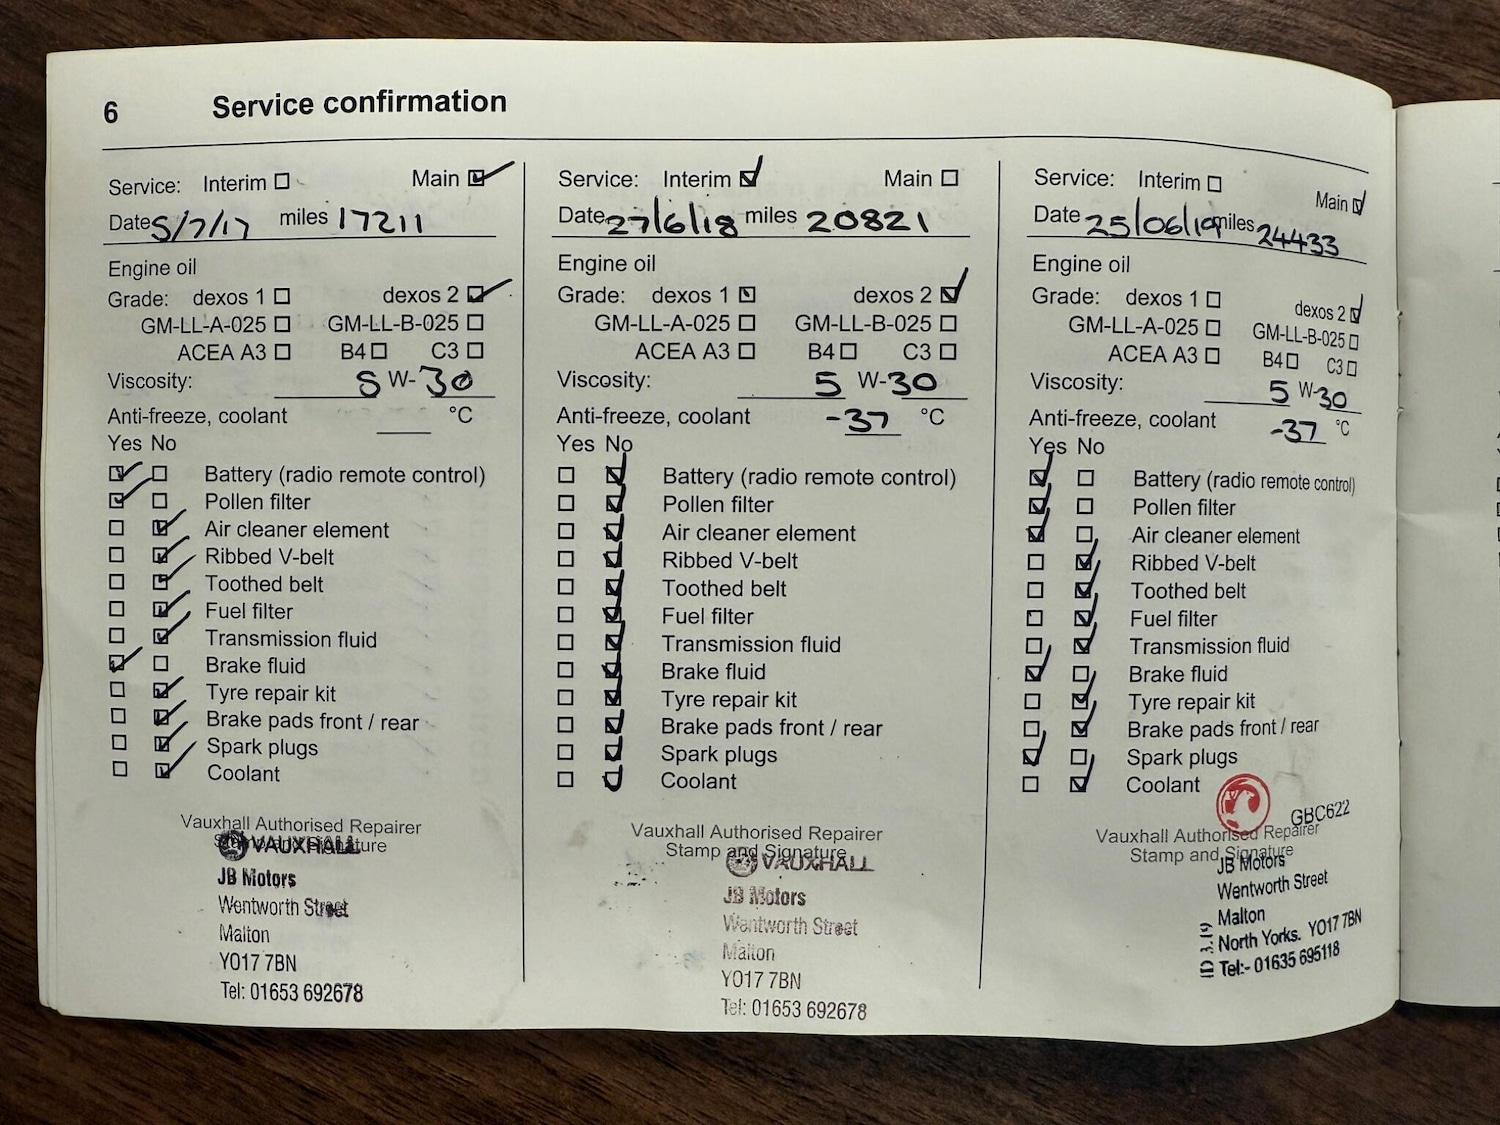 6 Service confirmation
Service: Interim Main
Date 5/7/17 miles 17211
Engine oil
Grade: dexos 1 dexos 2
GM-LL-A-025 GM-LL-B-025
ACEA A3 B4 C3
Viscosity: 5 W-30
Anti-freeze, coolant °C
Yes No
Battery (radio remote control)
Pollen filter
Air cleaner element
Ribbed V-belt
Toothed belt
Fuel filter
Transmission fluid
Brake fluid
Tyre repair kit
Brake pads front / rear
Spark plugs
Coolant
Vauxhall Authorised Repairer
Stamp and Signature
VAUXHALL
JB Motors
Wentworth Street
Malton
YO17 7BN
Tel: 01653 692678
Service: Interim Main
Date 27/6/18 miles 20821
Engine oil
Grade: dexos 1 dexos 2
GM-LL-A-025 GM-LL-B-025
ACEA A3 B4 C3
Viscosity: 5 W-30
Anti-freeze, coolant -37 °C
Yes No
Battery (radio remote control)
Pollen filter
Air cleaner element
Ribbed V-belt
Toothed belt
Fuel filter
Transmission fluid
Brake fluid
Tyre repair kit
Brake pads front / rear
Spark plugs
Coolant
Vauxhall Authorised Repairer
Stamp and Signature
VAUXHALL
JB Motors
Wentworth Street
Malton
YO17 7BN
Tel: 01653 692678
Service: Interim Main
Date 25/06/19 miles 24433
Engine oil
Grade: dexos 1 dexos 2
GM-LL-A-025 GM-LL-B-025
ACEA A3 B4 C3
Viscosity: 5 W-30
Anti-freeze, coolant -37 °C
Yes No
Battery (radio remote control)
Pollen filter
Air cleaner element
Ribbed V-belt
Toothed belt
Fuel filter
Transmission fluid
Brake fluid
Tyre repair kit
Brake pads front / rear
Spark plugs
Coolant
GBC622
Vauxhall Authorised Repairer
Stamp and Signature
JB Motors
Wentworth Street
Malton
North Yorks. YO17 7BN
Tel:- 01635 695118
ID 3.19